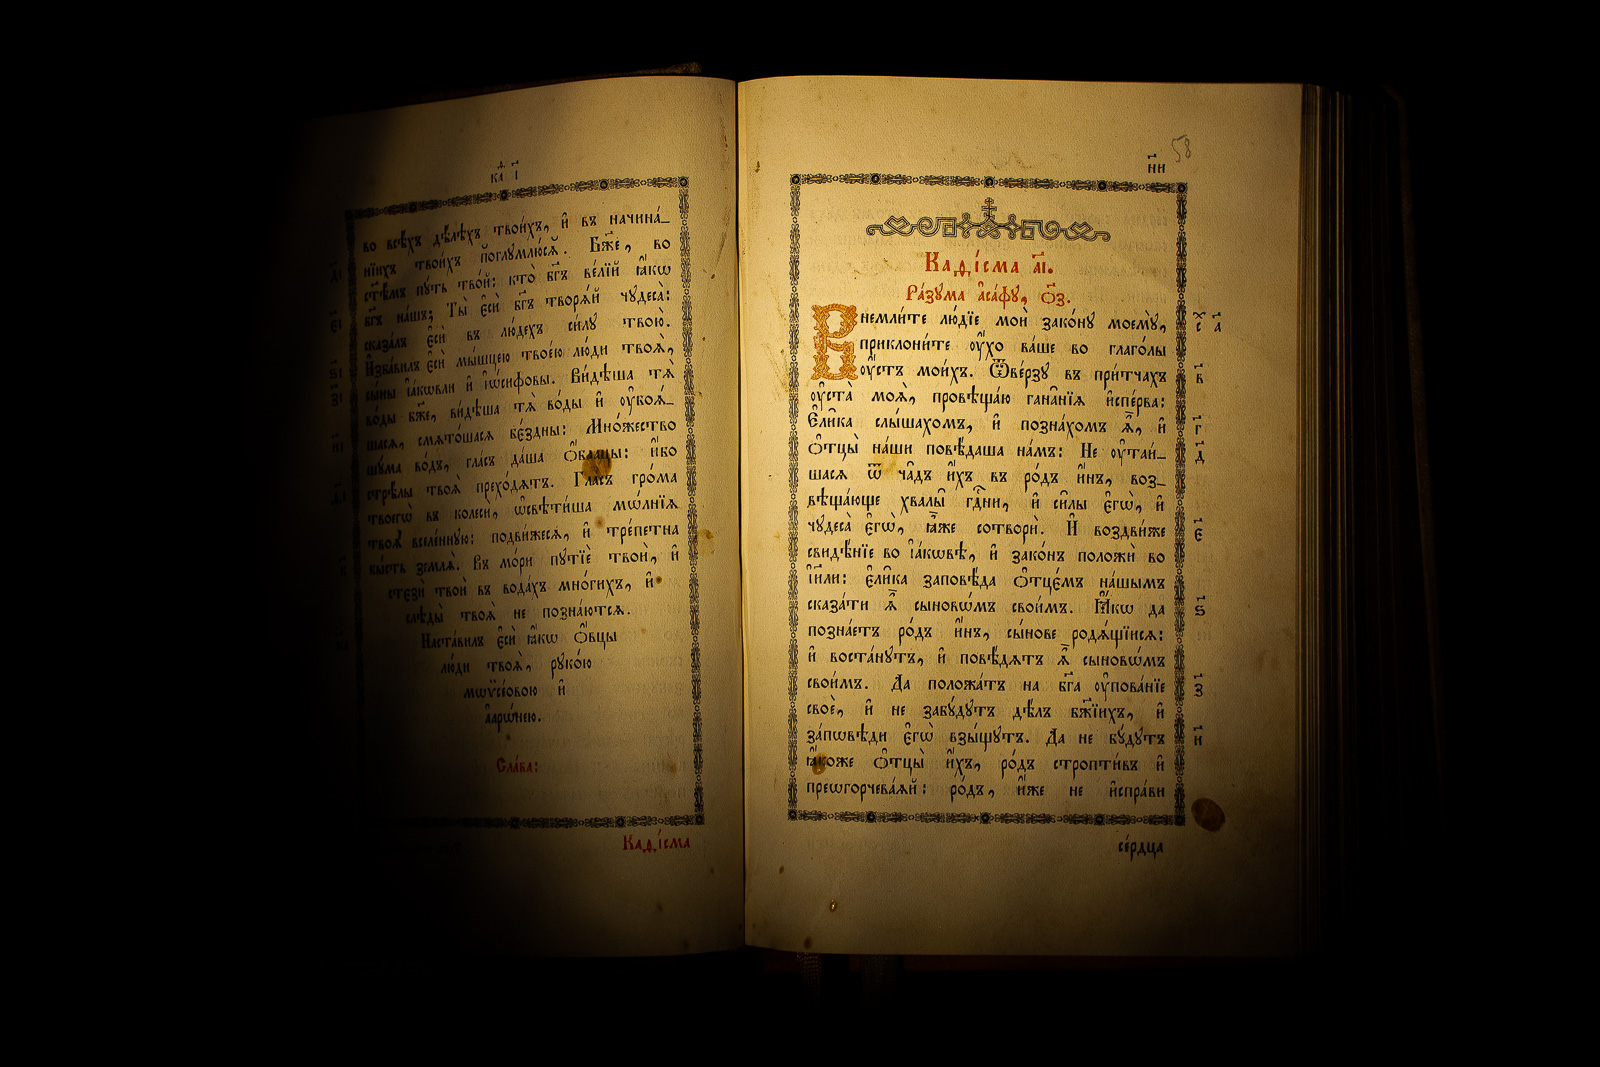 каѳ і
во всѣ́хъ дѣ́лѣхъ твои́хъ, и҆ въ начина́_
нїихъ твои́хъ поглꙋмлю́сѧ̀. Бж҃е, во
ст҃ѣ́мъ пꙋ́ть тво́й: кто̀ бг҃ъ ве́лїй ꙗ҆́кѡ
бг҃ъ на́шъ; Ты̀ є҆сѝ бг҃ъ творѧ́й чꙋдеса̀:
сказа́лъ є҆сѝ въ лю́дехъ си́лꙋ твою̀.
И҆зба́вилъ є҆сѝ мы́шцею твое́ю лю́ди твоѧ̑,
сы́ны і҆а́кѡвли и҆ і҆ѡ́сифовы. Ви́дѣша тѧ̀
во́ды бж҃е, ви́дѣша тѧ̀ во́ды и҆ ᲂу҆боѧ́_
шасѧ, смѧто́шасѧ бе́здны: Мно́жество
шꙋ́ма во́дъ, гла́съ да́ша ѻ҆́блацы: и҆́бо
стрѣ́лы твоѧ̑ прехо́дѧтъ. Гла́съ гро́ма
твоегѡ̀ въ колесѝ, ѡ҆свѣти́ша мѡ́лнїѧ
твоѧ̑ вселе́ннꙋю: подви́жесѧ, и҆ тре́петна
бы́сть землѧ̀. Въ мо́ри пꙋтїѐ твоѝ, и҆
стезѝ твоѝ въ вода́хъ мно́гихъ, и҆
слѣды̀ твоѧ̑ не позна́ютсѧ.
Наста́вилъ є҆сѝ ꙗ҆́кѡ ѻ҆́вцы
лю́ди твоѧ̑, рꙋко́ю
мѡѷсе́овою и҆
а҆арѡ́нею.
Сла́ва:
Каѳі́сма
58
н҃и
Каѳі́сма а҃і.
Ра́зꙋма а҆са́фꙋ, ѻ҃з.
Внемли́те лю́дїе моѝ зако́нꙋ моемꙋ̀,
приклони́те ᲂу҆́хо ва́ше во глаго́лы
ᲂу҆́стъ мои́хъ. Ѿве́рзꙋ въ при́тчахъ
ᲂу҆ста̀ моѧ̑, провѣща́ю гана́нїѧ и҆спе́рва:
Є҆ли́ка слы́шахомъ, и҆ позна́хомъ ѧ҆̀, и҆
ѻ҆тцы̀ на́ши повѣ́даша на́мъ: Не ᲂу҆таи́_
шасѧ ѿ ча́дъ и҆́хъ въ ро́дъ и҆́нъ, воз_
вѣща́юще хвалы̑ гд҇ни, и҆ си́лы є҆гѡ̀, и҆
чꙋдеса̀ є҆гѡ̀, ꙗ҆̀же сотворѝ. И҆ воздви́же
свидѣ́нїе во і҆а́кѡвѣ, и҆ зако́нъ положѝ во
і҆и҃ли: є҆ли́ка заповѣ́да ѻ҆тцє́мъ на́шымъ
сказа́ти ѧ҆̀ сыновѡ́мъ свои́мъ. Ꙗ҆́кѡ да
позна́етъ ро́дъ и҆́нъ, сы́нове родѧ́щїисѧ:
и҆ воста́нꙋтъ, и҆ повѣ́дѧтъ ѧ҆̀ сыновѡ́мъ
свои́мъ. Да положа́тъ на бг҃а ᲂу҆пова́нїе
своѐ, и҆ не забꙋ́дꙋтъ дѣ́лъ бж҃їихъ, и҆
за́пѡвѣди є҆гѡ̀ взы́щꙋтъ. Да не бꙋ́дꙋтъ
ꙗ҆́коже ѻ҆тцы̀ и҆́хъ, ро́дъ стропти́въ и҆
преѡгорчева́ѧй: ро́дъ, и҆́же не и҆спра́ви
се́рдца
с҃ а҃
в҃
г҃
д҃
є҃
ѕ҃
з҃
и҃